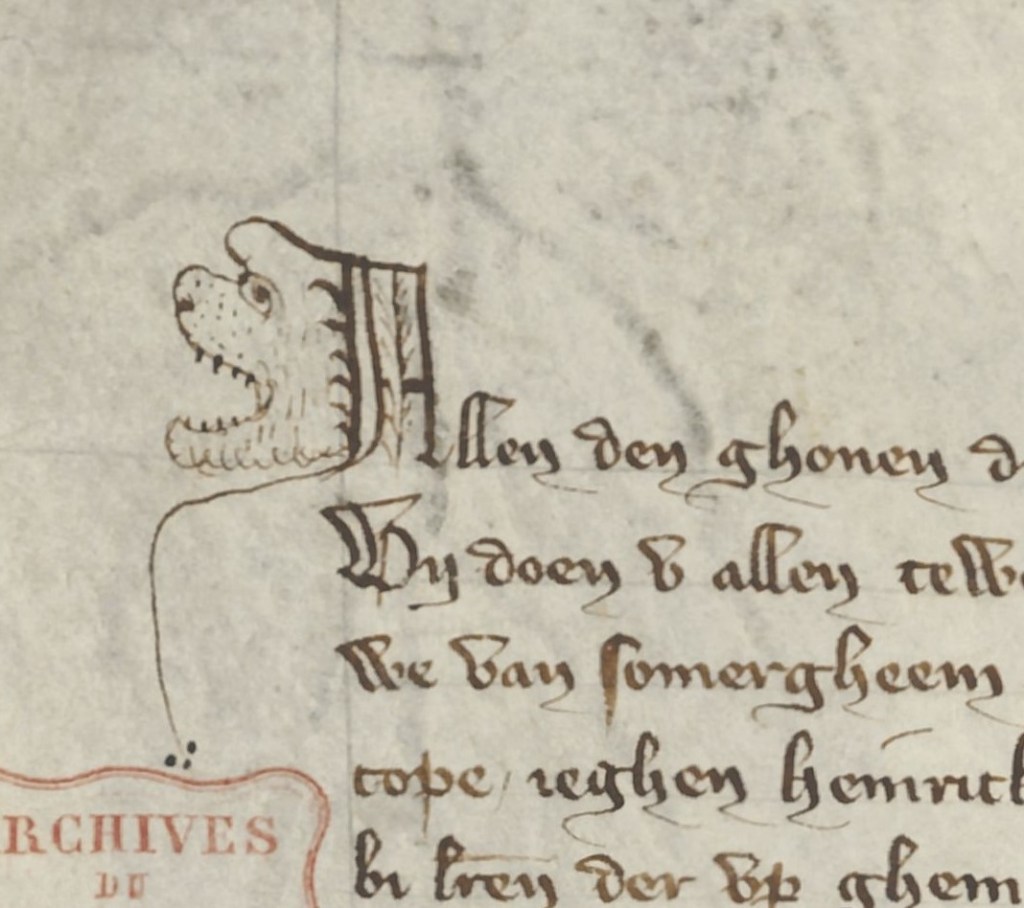 Allen den ghonen d
Wij doen v allen tewe
we van somergheem
cope / ieghen heinrick
bi lren der vp ghem
RCHIVES
DU